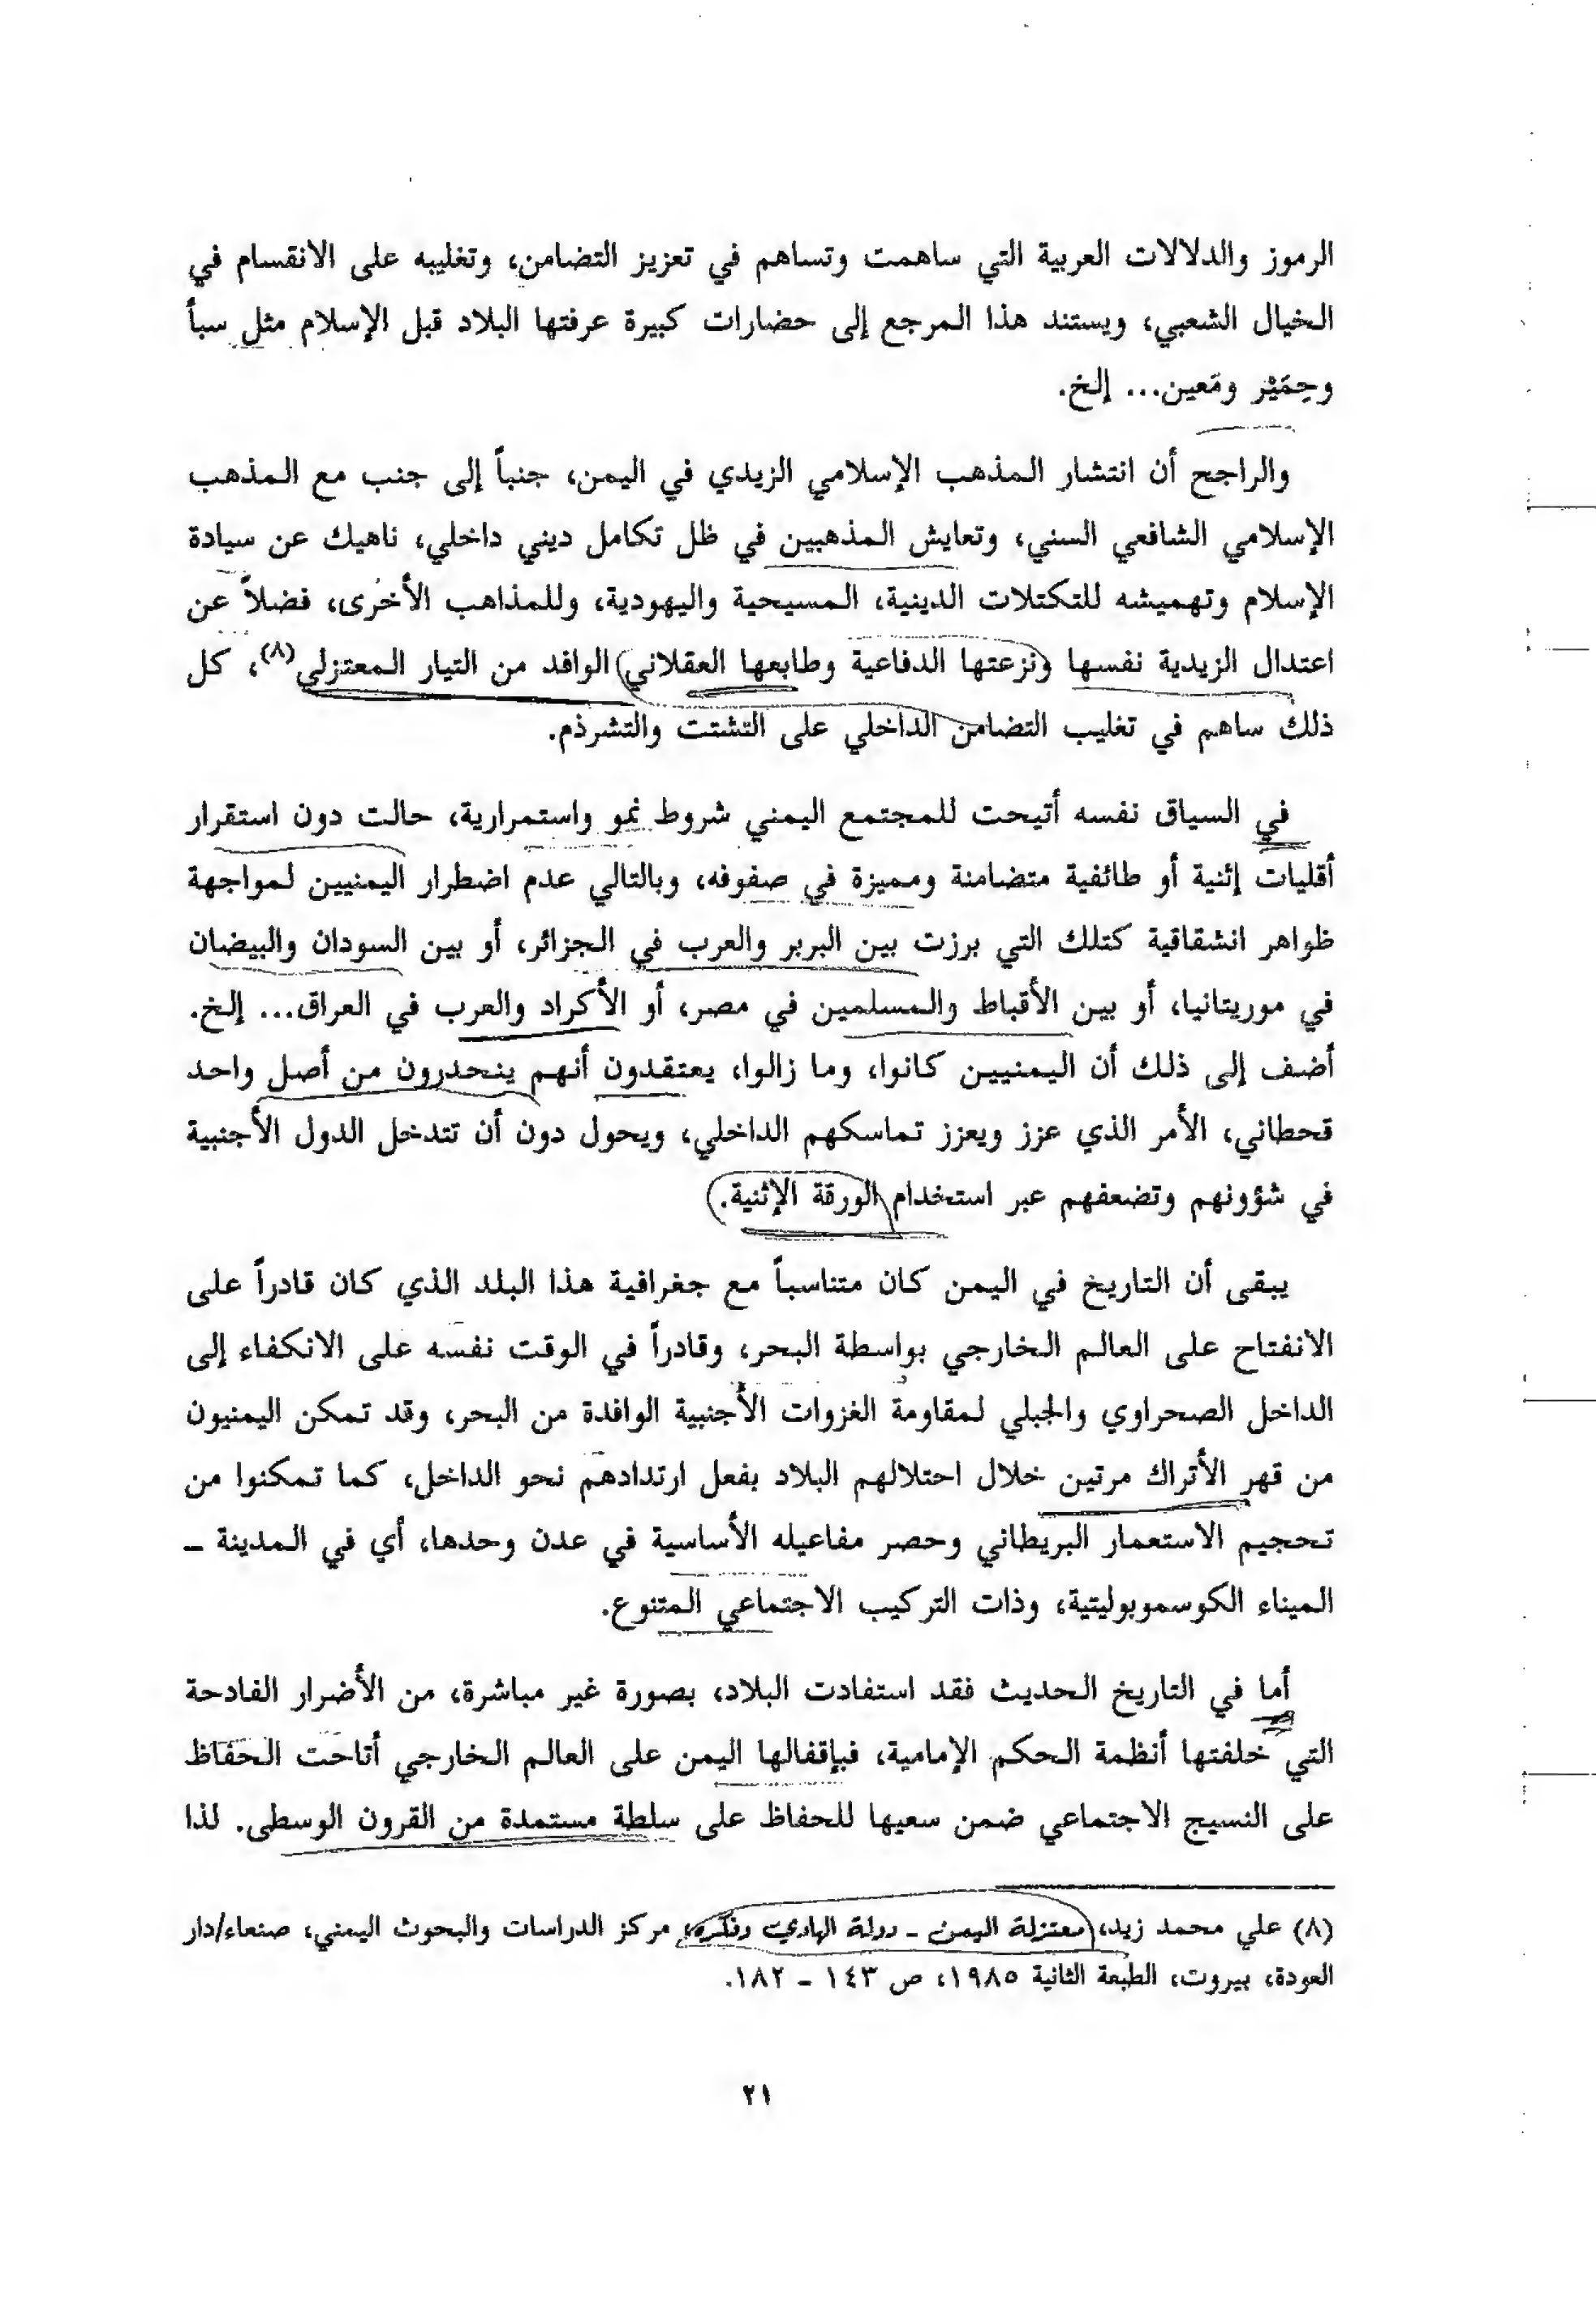 الرموز والدلالات العربية التي ساهمت وتساهم في تعزيز التضامن، وتغليبه على الانقسام في
الخيال الشعبي، ويستند هذا المرجع إلى حضارات كبيرة عرفتها البلاد قبل الإسلام مثل سبأ
وحِمْيَر ومَعين... إلخ.
والراجح أن انتشار المذهب الإسلامي الزيدي في اليمن، جنباً إلى جنب مع المذهب
الإسلامي الشافعي السني، وتعايش المذهبين في ظل تكامل ديني داخلي، ناهيك عن سيادة
الإسلام وتهميشه للتكتلات الدينية، المسيحية واليهودية، وللمذاهب الأخرى، فضلاً عن
اعتدال الزيدية نفسها ونزعتها الدفاعية وطابعها العقلاني الوافد من التيار المعتزلي(٨)، كل
ذلك ساهم في تغليب التضامن الداخلي على التشتت والتشرذم.
في السياق نفسه أتيحت للمجتمع اليمني شروط نمو واستمرارية، حالت دون استقرار
أقليات إثنية أو طائفية متضامنة ومميزة في صفوفه، وبالتالي عدم اضطرار اليمنيين لمواجهة
ظواهر انشقاقية كتلك التي برزت بين البربر والعرب في الجزائر، أو بين السودان والبيضان
في موريتانيا، أو بين الأقباط والمسلمين في مصر، أو الأكراد والعرب في العراق... إلخ.
أضف إلى ذلك أن اليمنيين كانوا، وما زالوا، يعتقدون أنهم ينحدرون من أصل واحد
قحطاني، الأمر الذي عزز ويعزز تماسكهم الداخلي، ويحول دون أن تتدخل الدول الأجنبية
في شؤونهم وتضعفهم عبر استخدام الورقة الإثنية.
يبقى أن التاريخ في اليمن كان متناسباً مع جغرافية هذا البلد الذي كان قادراً على
الانفتاح على العالم الخارجي بواسطة البحر، وقادراً في الوقت نفسه على الانكفاء إلى
الداخل الصحراوي والجبلي لمقاومة الغزوات الأجنبية الوافدة من البحر، وقد تمكن اليمنيون
من قهر الأتراك مرتين خلال احتلالهم البلاد بفعل ارتدادهم نحو الداخل، كما تمكنوا من
تحجيم الاستعمار البريطاني وحصر مفاعيله الأساسية في عدن وحدها، أي في المدينة ـ
الميناء الكوسموبوليتية، وذات التركيب الاجتماعي المتنوع.
أما في التاريخ الحديث فقد استفادت البلاد، بصورة غير مباشرة، من الأضرار الفادحة
التي خلفتها أنظمة الحكم الإمامية، فبإقفالها اليمن على العالم الخارجي أتاحت الحفاظ
على النسيج الاجتماعي ضمن سعيها للحفاظ على سلطة مستمدة من القرون الوسطى. لذا
(٨) علي محمد زيد، معتزلة اليمن ـ دولة الهادي وفكره، مركز الدراسات والبحوث اليمني، صنعاء/دار
العودة، بيروت، الطبعة الثانية ١٩٨٥، ص ١٤٣ ـ ١٨٢.
٢١